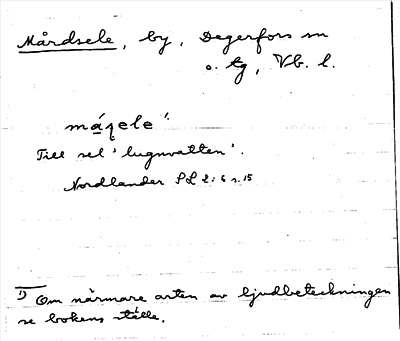 Mårdsele, by, Degerfors sn
o. tg, Vb. l.
máʂele ¹
Till sel 'lugnvatten'.
Nordlander SL 2:6 s. 15
1) Om närmare arten av ljudbeteckningen
se bokens ställe.